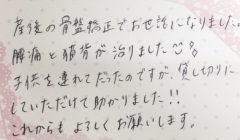 産後の骨盤矯正でお世話になりました。
腰痛と猫背が治りました
子供を連れてだったのですが、貸し切りに
していただけて助かりました!!
これからもよろしくお願いします。